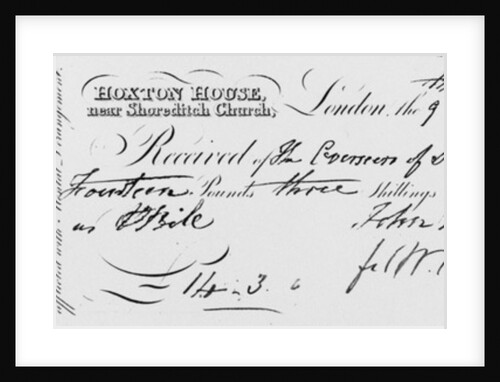 HOXTON HOUSE,
near Shoreditch Church,
London, the 9
Received of The Overseers of
Fourteen Pounds three Shillings
as Bile
John
£14 - 3
afflicted with Mental Derangement.